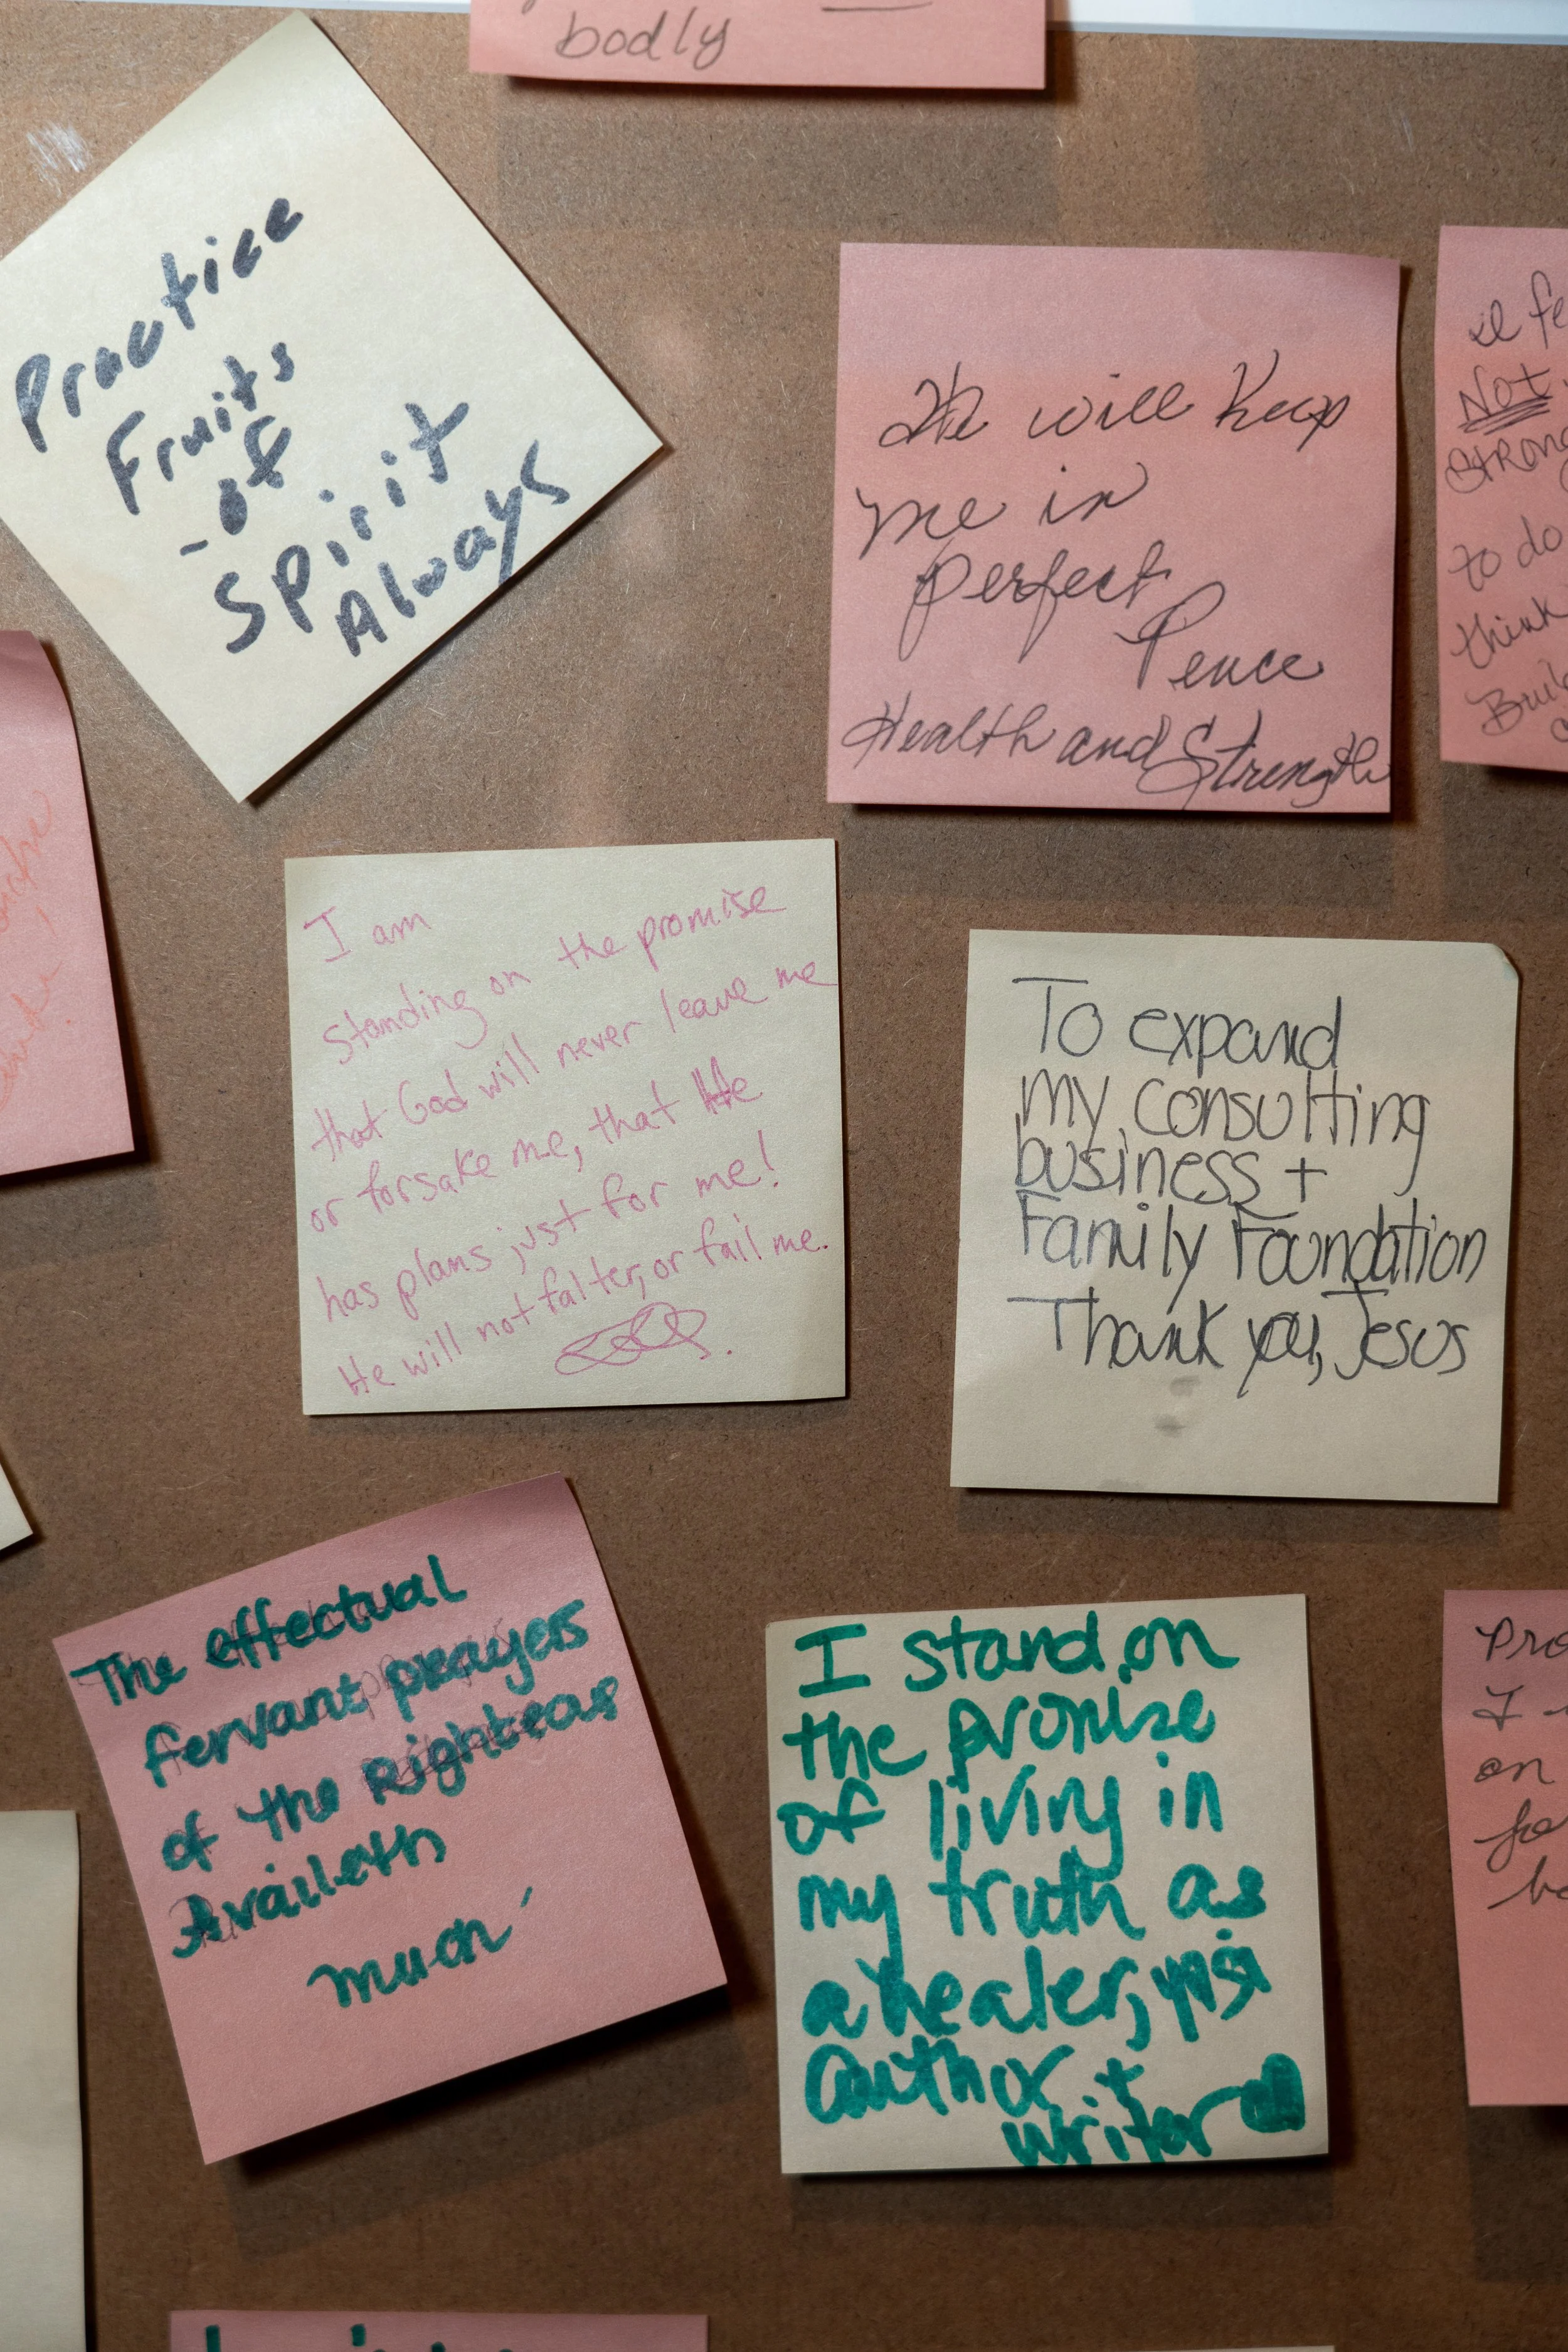 bodly
Practice
Fruits
-of
Spirit
Always
He will Keep
me in
perfect
Peace
Health and Strength
Not
Strong
to do
think
I am
standing on the promise
that God will never leave me
or forsake me, that He
has plans just for me!
He will not falter, or fail me.
To expand
my consulting
business +
Family Foundation
Thank you, Jesus
The effectual
fervant prayers
of the Righteous
Availeth
much
I stand on
the promise
of living in
my truth as
a healer,
author +
writer
Pro
I
on